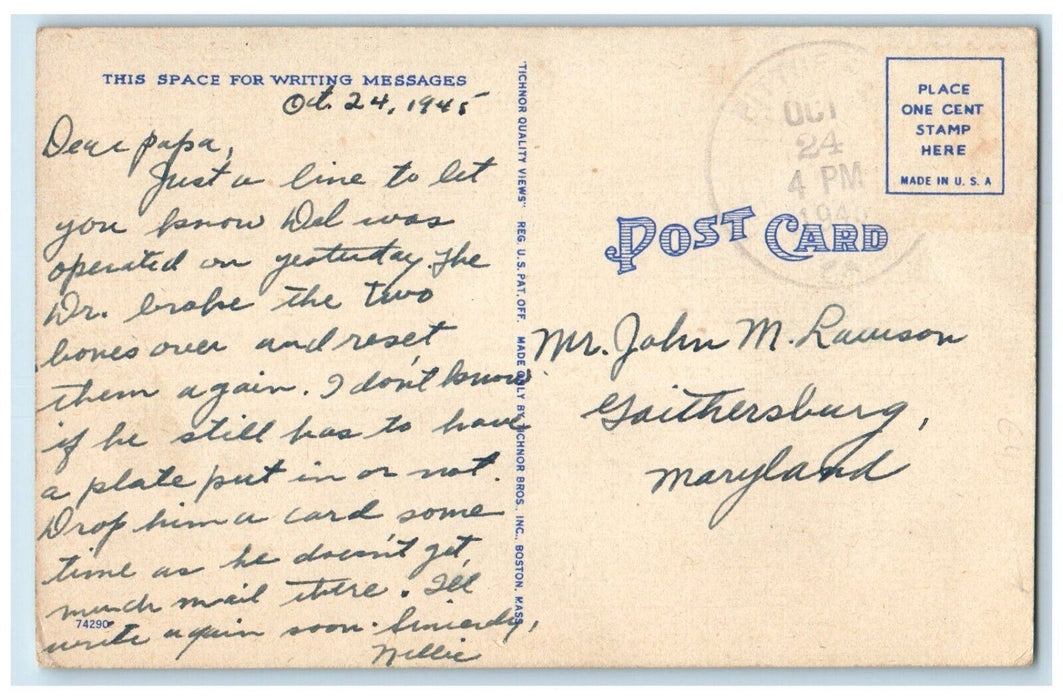 THIS SPACE FOR WRITING MESSAGES
Oct. 24, 1945
Dear papa,
Just a line to let
you know Del was
operated on yesterday. The
Dr. broke the two
bones over and reset
them again. I don't know
if he still has to have
a plate put in or not.
Drop him a card some
time as he doesn't get
much mail there. I'll
write again soon. Sincerely,
Willie
74290
TICHNOR QUALITY VIEWS" REG. U. S. PAT. OFF. MADE ONLY BY TICHNOR BROS. INC., BOSTON, MASS.
OCT
24
4 PM
1945
PA
PLACE
ONE CENT
STAMP
HERE
MADE IN U. S. A
POST CARD
Mr. John M. Lawson
Gaithersburg,
Maryland